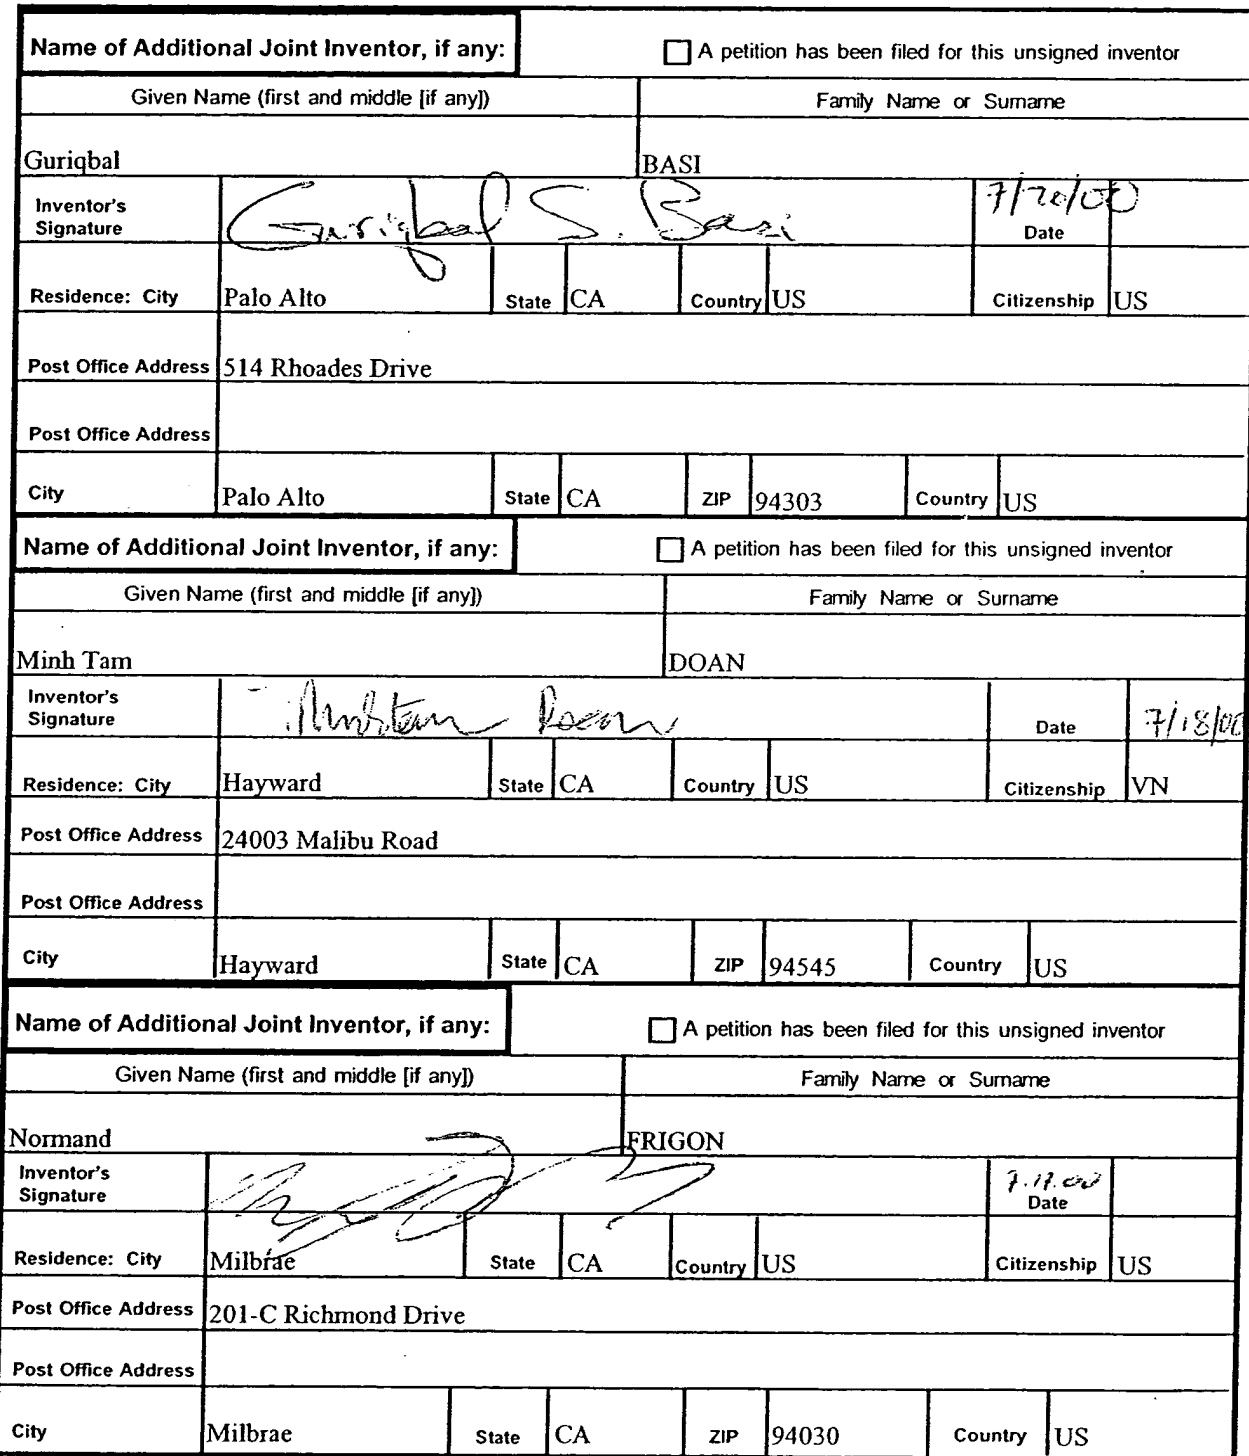 Name of Additional Joint Inventor, if any: A petition has been filed for this unsigned inventor
Given Name (first and middle [if any]) Family Name or Surname
Guriqbal BASI
Inventor's Signature Guriqbal S. Basi 7/20/00 Date
Residence: City Palo Alto State CA Country US Citizenship US
Post Office Address 514 Rhoades Drive
Post Office Address
City Palo Alto State CA ZIP 94303 Country US
Name of Additional Joint Inventor, if any: A petition has been filed for this unsigned inventor
Given Name (first and middle [if any]) Family Name or Surname
Minh Tam DOAN
Inventor's Signature Minh Tam Doan Date 7/18/00
Residence: City Hayward State CA Country US Citizenship VN
Post Office Address 24003 Malibu Road
Post Office Address
City Hayward State CA ZIP 94545 Country US
Name of Additional Joint Inventor, if any: A petition has been filed for this unsigned inventor
Given Name (first and middle [if any]) Family Name or Surname
Normand FRIGON
Inventor's Signature Date
Residence: City Milbrae State CA Country US Citizenship US
Post Office Address 201-C Richmond Drive
Post Office Address
City Milbrae State CA ZIP 94030 Country US